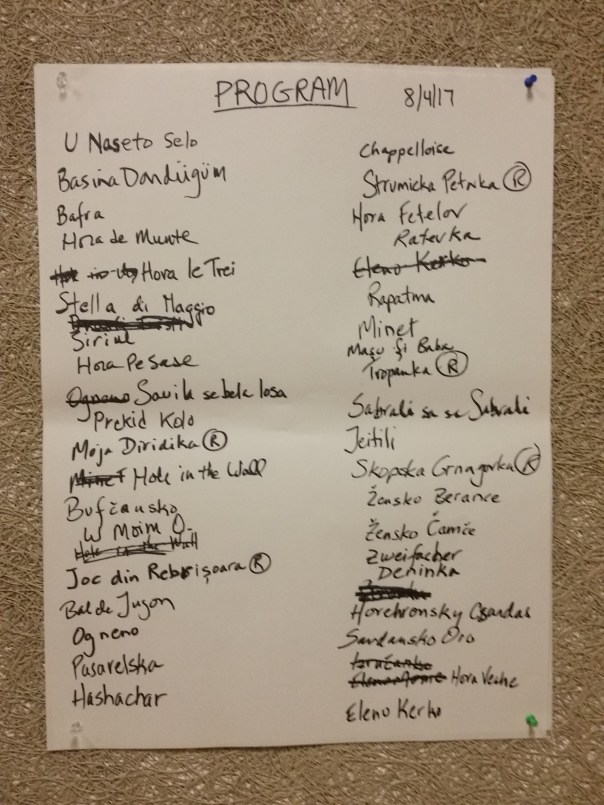 PROGRAM 8/4/17
U Naseto Selo
Basina Dondügüm
Bafra
Hora de Munte
Hora le Trei
Stella di Maggio
Siriul
Hora Pe Sase
Ogneno Savila se bela losa
Prekid Kolo
Moja Diridika Ⓡ
Minet Hole in the Wall
Bufčansko
W Moim O.
Hole in the Wall
Joc din Rebrişoara Ⓡ
Bal de Jugon
Ogneno
Pusarelska
Hashachar
Chappelloise
Strumicka Petrika Ⓡ
Hora Fetelov
Ratevka
Eleno Kerko
Rapatma
Minet
Maşu şi Baba
Tropanka Ⓡ
Sabrali sa se Sabrali
Jeitili
Skopska Crnagorka Ⓡ
Žensko Berance
Žensko Čamče
Zweifacher
Deninka
Horehronsky Csardas
Sandansko Oro
Hora Veche
Eleno Kerko